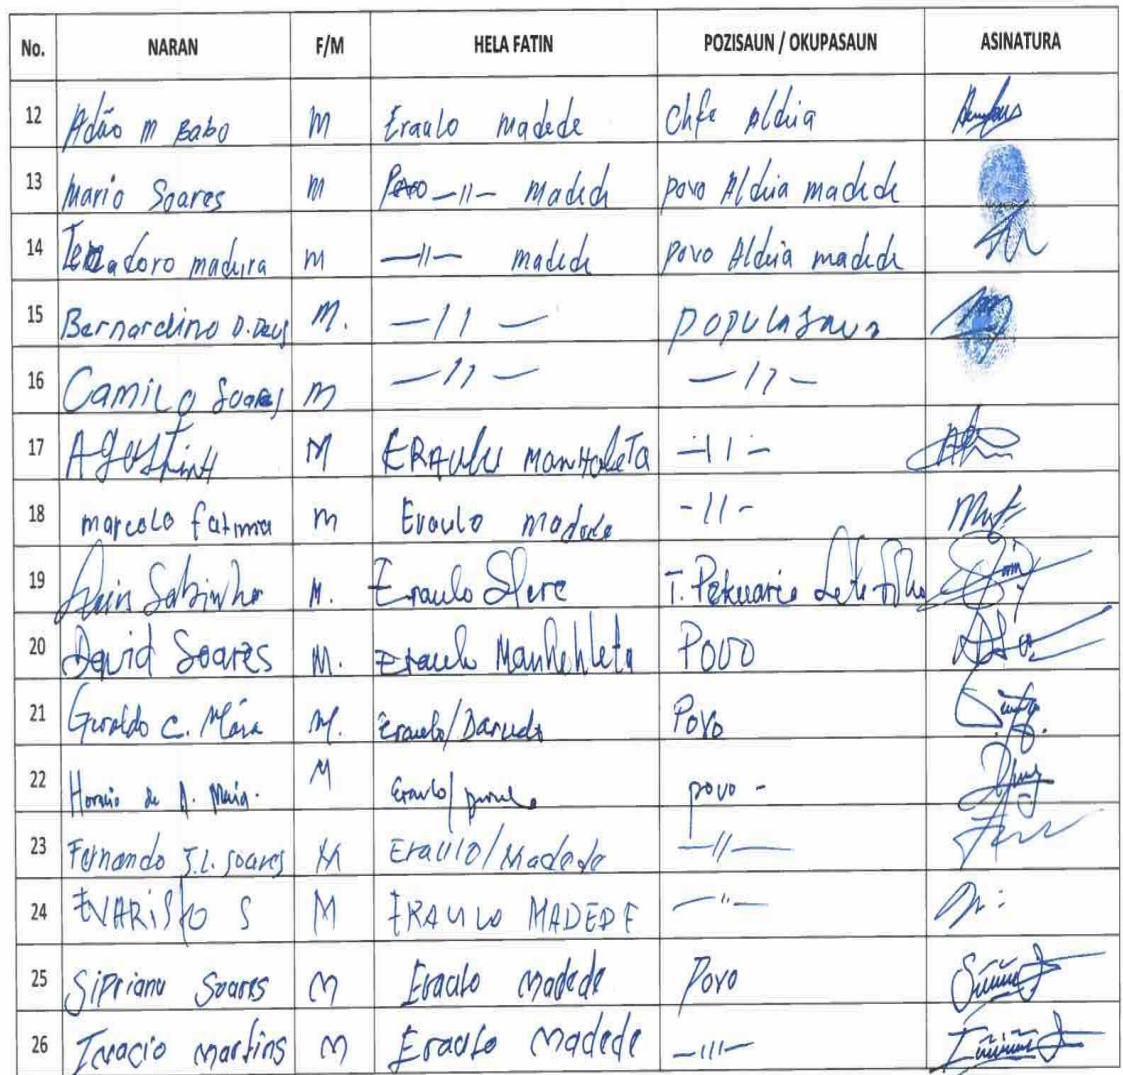 No. NARAN F/M HELA FATIN POZISAUN / OKUPASAUN ASINATURA
12 Adão M Babo M Eraulo madede Chfe Aldeia
13 Mario Soares M —11— Madede povo Aldeia madede
14 madeira M —11— madede povo Aldeia madede
15 Bernardino D. Deus M. —11— populasaun
16 Camilo Soares M —11— —11—
17 M ERAULU MANHOLETA —11—
18 marcelo fatima m Eraulo madede -11-
19 Sabinho M. Eraulo T. Pekuario
20 David Soares M. Eraulo Manhehleta Povo
21 Geraldo C. M. Eraulo/ Povo
22 Horacio de A. Maia. M Eraulo/ povo -
23 Fernando J.L. Soares M Eraulo/Madede —11—
24 EVARISTO S M ERAULO MADEDE —11—
25 Siprianu Soares M Eraulo Madede Povo
26 Inacio Martins M Eraulo Madede —111—